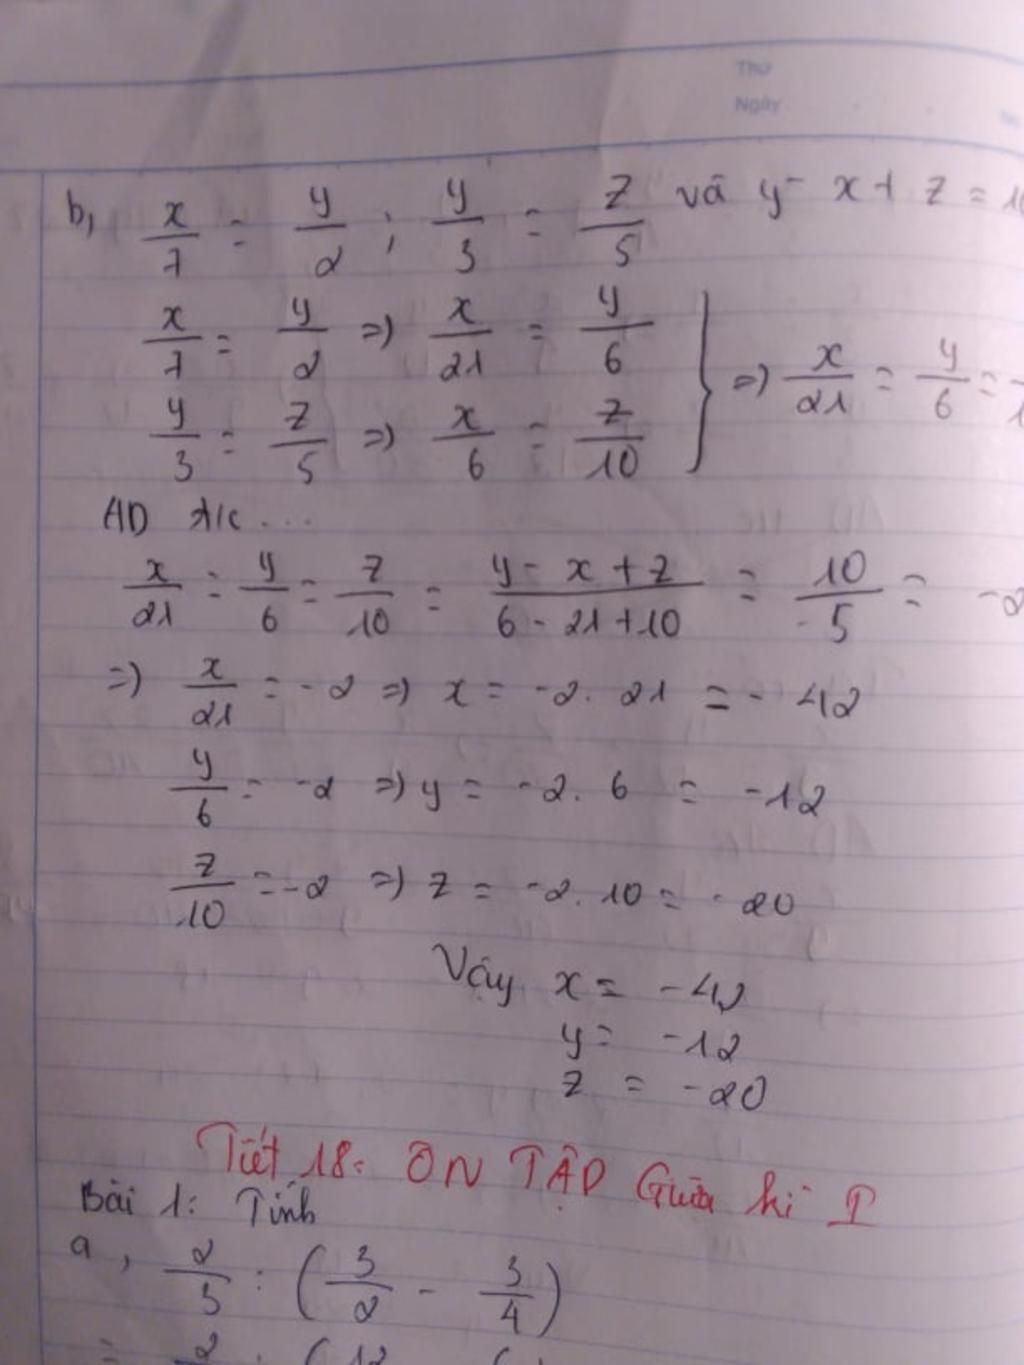 Thứ
Ngày
b, x/7 = y/2 ; y/3 = z/5 và y - x + z = 10
x/7 = y/2 => x/21 = y/6
y/3 = z/5 => x/6 = z/10 } => x/21 = y/6 =
AD t/c ...
x/21 = y/6 = z/10 = (y - x + z)/(6 - 21 + 10) = 10/-5 = -2
=> x/21 = -2 => x = -2. 21 = -42
y/6 = -2 => y = -2. 6 = -12
z/10 = -2 => z = -2. 10 = -20
Vậy x = -42
y = -12
z = -20
Tiết 18: ÔN TẬP Giữa kì I
Bài 1: Tính
a, 2/3 : (3/2 - 3/4)
= 2 : (12